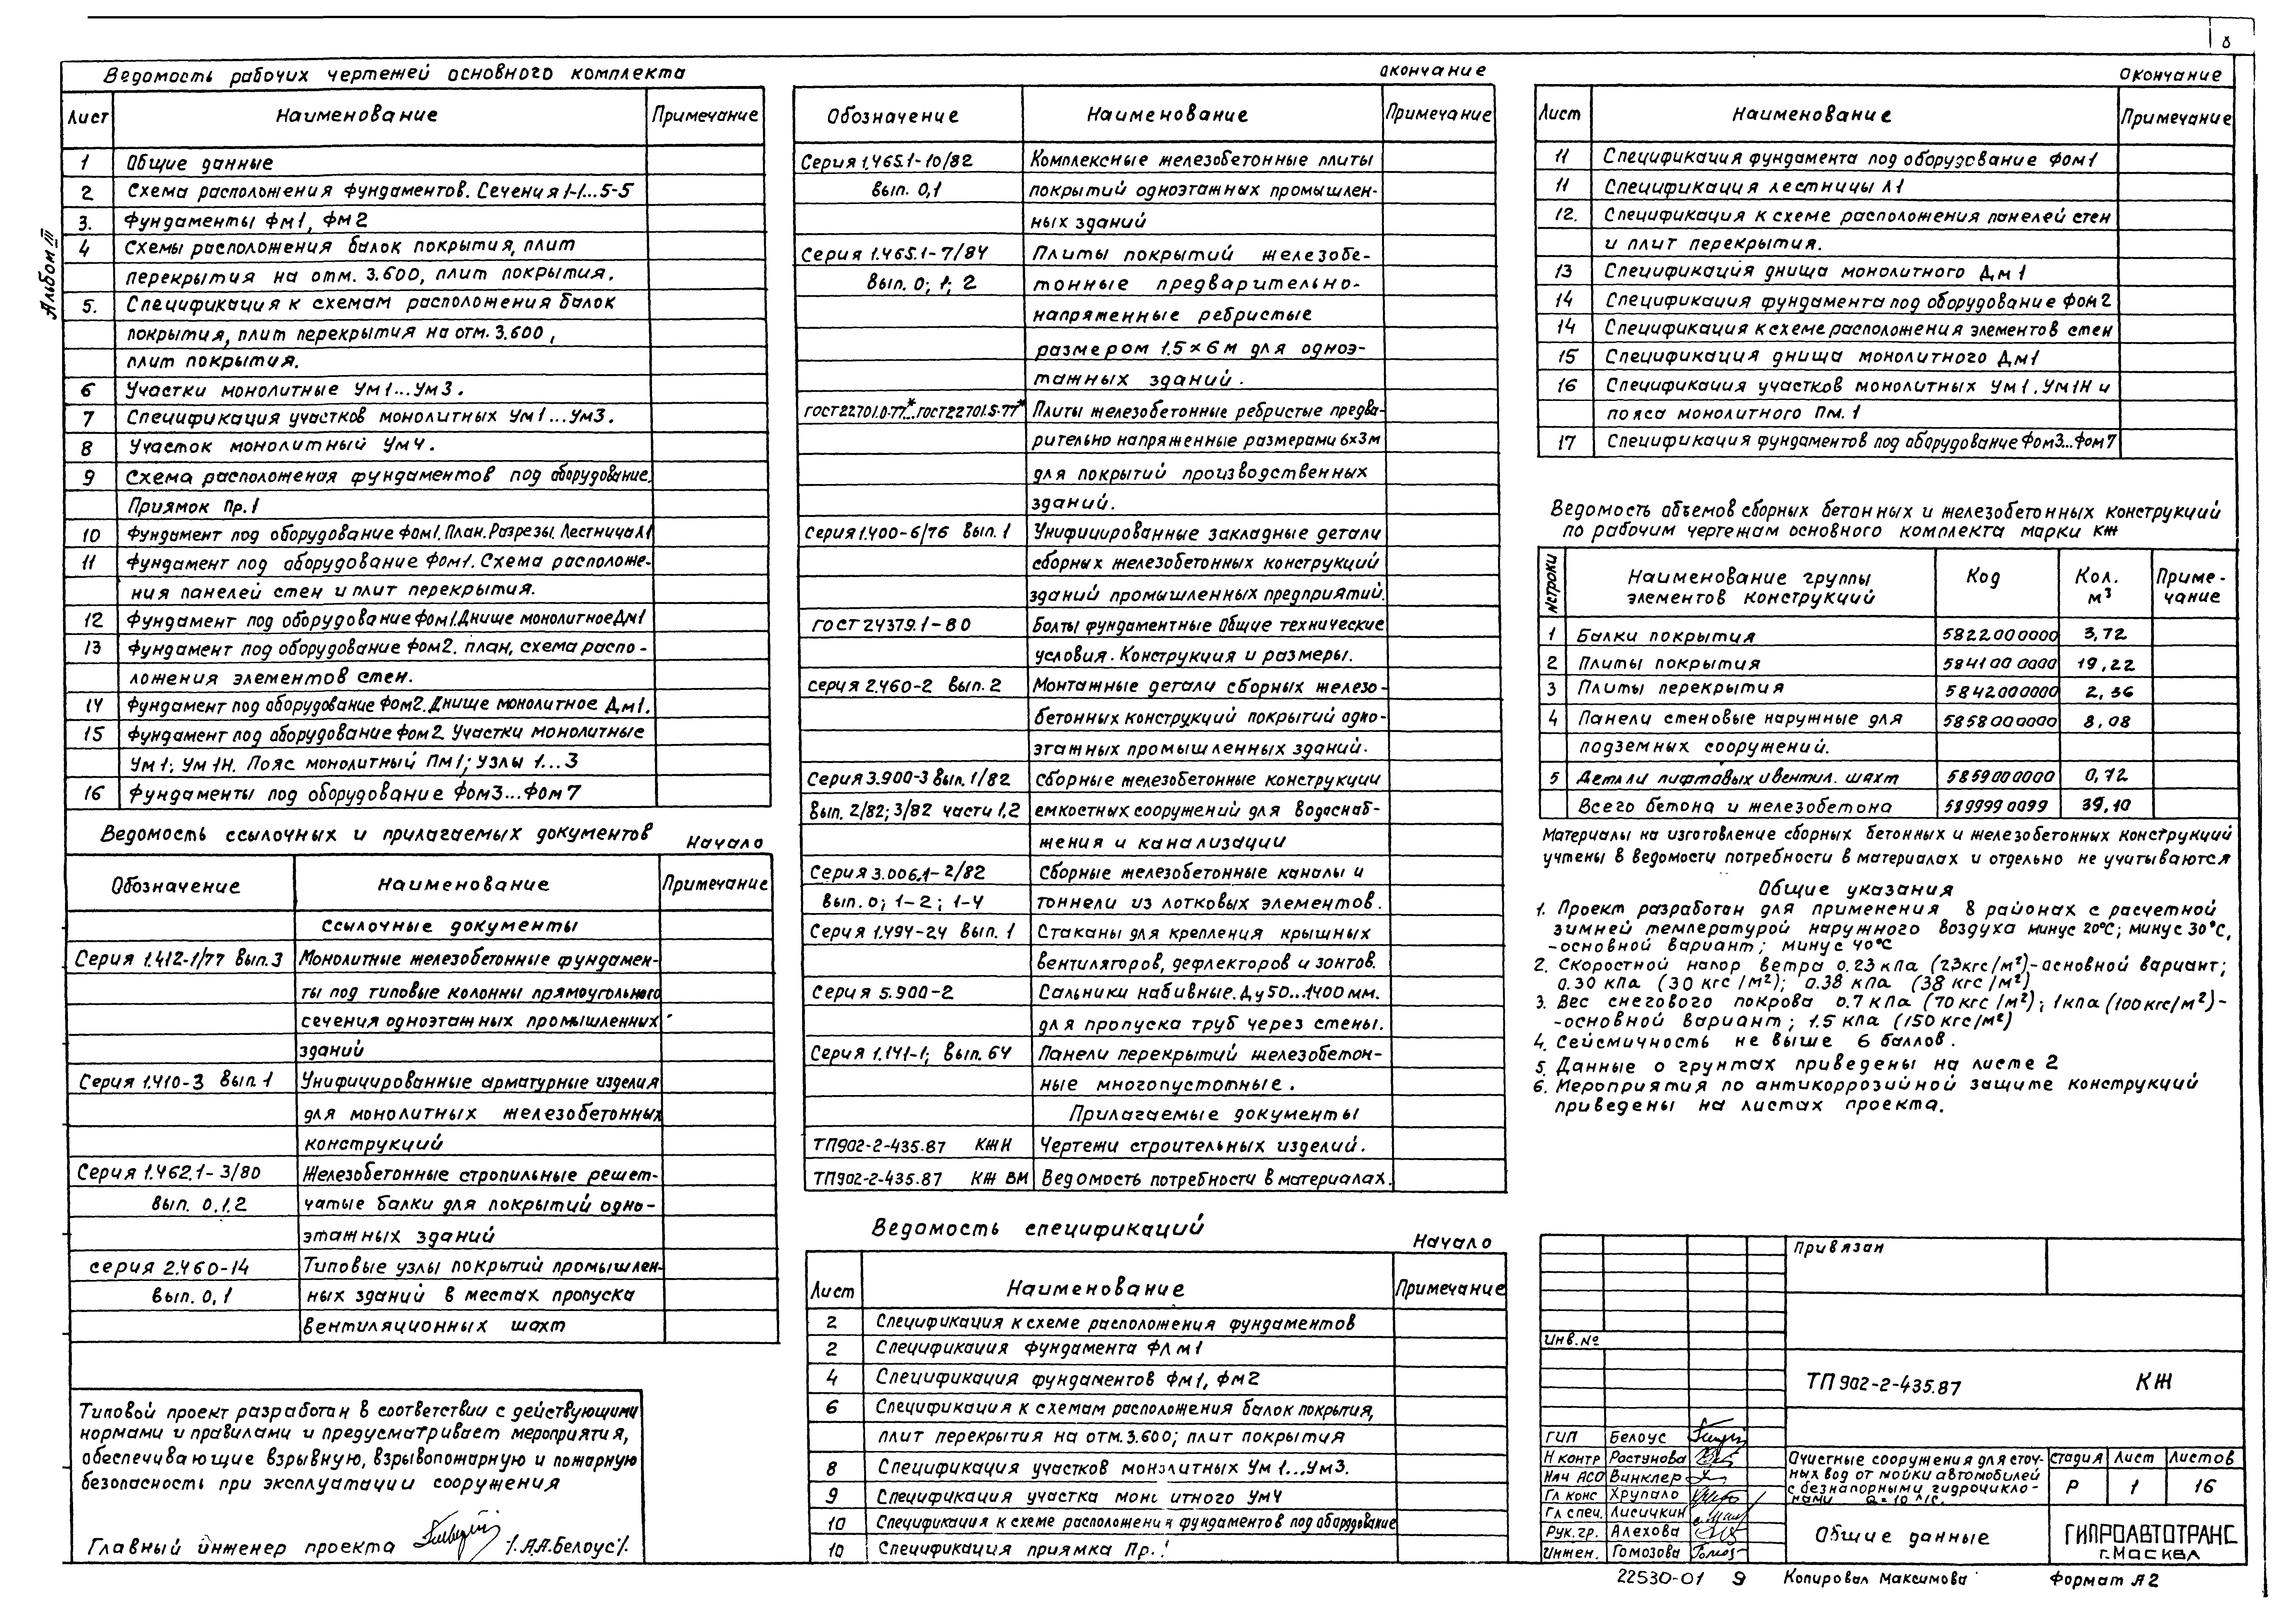 8
Альбом III
Ведомость рабочих чертежей основного комплекта
Лист Наименование Примечание
1 Общие данные
2 Схема расположения фундаментов. Сечения 1-1...5-5
3. Фундаменты Фм1, Фм2
4 Схемы расположения балок покрытия, плит
перекрытия на отм. 3.600, плит покрытия.
5. Спецификация к схемам расположения балок
покрытия, плит перекрытия на отм. 3.600,
плит покрытия.
6 Участки монолитные Ум1...Ум3.
7 Спецификация участков монолитных Ум1...Ум3.
8 Участок монолитный Ум4.
9 Схема расположения фундаментов под оборудование.
Приямок Пр.1
10 Фундамент под оборудование Фом1. План. Разрезы. Лестница Л1
11 Фундамент под оборудование Фом1. Схема расположе-
ния панелей стен и плит перекрытия.
12 Фундамент под оборудование Фом1. Днище монолитное Дм1
13 Фундамент под оборудование Фом2. план, схема распо-
ложения элементов стен.
14 Фундамент под оборудование Фом2. Днище монолитное Дм1.
15 Фундамент под оборудование Фом2. Участки монолитные
Ум1; Ум1Н. Пояс монолитный Пм1; Узлы 1...3
16 Фундаменты под оборудование Фом3...Фом7
Ведомость ссылочных и прилагаемых документов
Начало
Обозначение Наименование Примечание
Ссылочные документы
Серия 1.412-1/77 вып.3 Монолитные железобетонные фундамен-
ты под типовые колонны прямоугольного
сечения одноэтажных промышленных
зданий
Серия 1.410-3 вып 1 Унифицированные арматурные изделия
для монолитных железобетонных
конструкций
Серия 1.462.1-3/80 Железобетонные стропильные решет-
вып. 0,1,2 чатые балки для покрытий одно-
этажных зданий
серия 2.460-14 Типовые узлы покрытий промышлен-
вып. 0,1 ных зданий в местах пропуска
вентиляционных шахт
Типовой проект разработан в соответствии с действующими
нормами и правилами и предусматривает мероприятия,
обеспечивающие взрывную, взрывопожарную и пожарную
безопасность при эксплуатации сооружения
Главный инженер проекта /.А.А.Белоус/.
окончание
Обозначение Наименование Примечание
Серия 1.465.1-10/82 Комплексные железобетонные плиты
вып. 0,1 покрытий одноэтажных промышлен-
ных зданий
Серия 1.465.1-7/84 Плиты покрытий железобе-
вып. 0; 1; 2 тонные предварительно-
напряженные ребристые
размером 1.5×6м для одноэ-
тажных зданий.
ГОСТ22701.0-77*...ГОСТ22701.5-77* Плиты железобетонные ребристые предва-
рительно напряженные размерами 6х3м
для покрытий производственных
зданий.
Серия 1.400-6/76 вып. 1 Унифицированные закладные детали
сборных железобетонных конструкций
зданий промышленных предприятий.
ГОСТ 24379.1-80 Болты фундаментные Общие технические
условия. Конструкция и размеры.
серия 2.460-2 вып. 2 Монтажные детали сборных железо-
бетонных конструкций покрытий одно-
этажных промышленных зданий.
Серия 3.900-3 вып. 1/82 Сборные железобетонные конструкции
вып. 2/82; 3/82 части 1,2 емкостных сооружений для водоснаб-
жения и канализации
Серия 3.006.1-2/82 Сборные железобетонные каналы и
вып. 0; 1-2; 1-4 тоннели из лотковых элементов.
Серия 1.494-24 вып. 1 Стаканы для крепления крышных
вентиляторов, дефлекторов и зонтов.
Серия 5.900-2 Сальники набивные. Ду 50...1400 мм.
для пропуска труб через стены.
Серия 1.141-1; вып. 64 Панели перекрытий железобетон-
ные многопустотные.
Прилагаемые документы
ТП902-2-435.87 КЖИ Чертежи строительных изделий.
ТП902-2-435.87 КЖ ВМ Ведомость потребности в материалах.
Ведомость спецификаций
Начало
Лист Наименование Примечание
2 Спецификация к схеме расположения фундаментов
2 Спецификация фундамента ФЛм1
4 Спецификация фундаментов Фм1, Фм2
6 Спецификация к схемам расположения балок покрытия,
плит перекрытия на отм. 3.600; плит покрытия
8 Спецификация участков монолитных Ум1...Ум3.
9 Спецификация участка мон итного Ум4
10 Спецификация к схеме расположения фундаментов под оборудование
10 Спецификация приямка Пр.1
Окончание
Лист Наименование Примечание
11 Спецификация фундамента под оборудование Фом1
11 Спецификация лестницы Л1
12. Спецификация к схеме расположения панелей стен
и плит перекрытия.
13 Спецификация днища монолитного Дм1
14 Спецификация фундамента под оборудование Фом2
14 Спецификация к схеме расположения элементов стен
15 Спецификация днища монолитного Дм1
16 Спецификация участков монолитных Ум1. Ум1Н и
пояса монолитного Пм.1
17 Спецификация фундаментов под оборудование Фом3...Фом7
Ведомость объемов сборных бетонных и железобетонных конструкций
по рабочим чертежам основного комплекта марки кж
№строки Наименование группы элементов конструкций Код Кол. м³ Приме-чание
1 Балки покрытия 5822000000 3,72
2 Плиты покрытия 5841000000 19,22
3 Плиты перекрытия 5842000000 2,36
4 Панели стеновые наружные для 5858000000 8,08
подземных сооружений.
5 Детали лифтовых и вентил. шахт 5859000000 0,72
Всего бетона и железобетона 5899990099 39,10
Материалы на изготовление сборных бетонных и железобетонных конструкций
учтены в ведомости потребности в материалах и отдельно не учитываются
Общие указания
1. Проект разработан для применения в районах с расчетной
зимней температурой наружного воздуха минус 20°С; минус 30°С,
-основной вариант; минус 40°С
2. Скоростной напор ветра 0.23 кПа (23кгс/м²)-основной вариант;
0.30 кПа (30 кгс/м²); 0.38 кПа (38 кгс/м²)
3. Вес снегового покрова 0.7 кПа (70 кгс/м²); 1кПа (100кгс/м²)-
-основной вариант; 1.5 кПа (150 кгс/м²)
4. Сейсмичность не выше 6 баллов.
5. Данные о грунтах приведены на листе 2
6. Мероприятия по антикоррозийной защите конструкций
приведены на листах проекта.
Привязан
Инв.№
ТП 902-2-435.87 КЖ
ГИП Белоус
Н контр Ростунова
Нач АСО Винклер
Гл конс Хрупало
Гл спец. Лисичкин
Рук.гр. Алехова
Инжен. Гомозова
Очистные сооружения для сточ-
ных вод от мойки автомобилей
с безнапорными гидроцикло-
нами Q=10 л/с.
Стадия Лист Листов
Р 1 16
Общие данные
ГИПРОАВТОТРАНС
г.Москва
22530-01 9 Копировал Максимова Формат А2